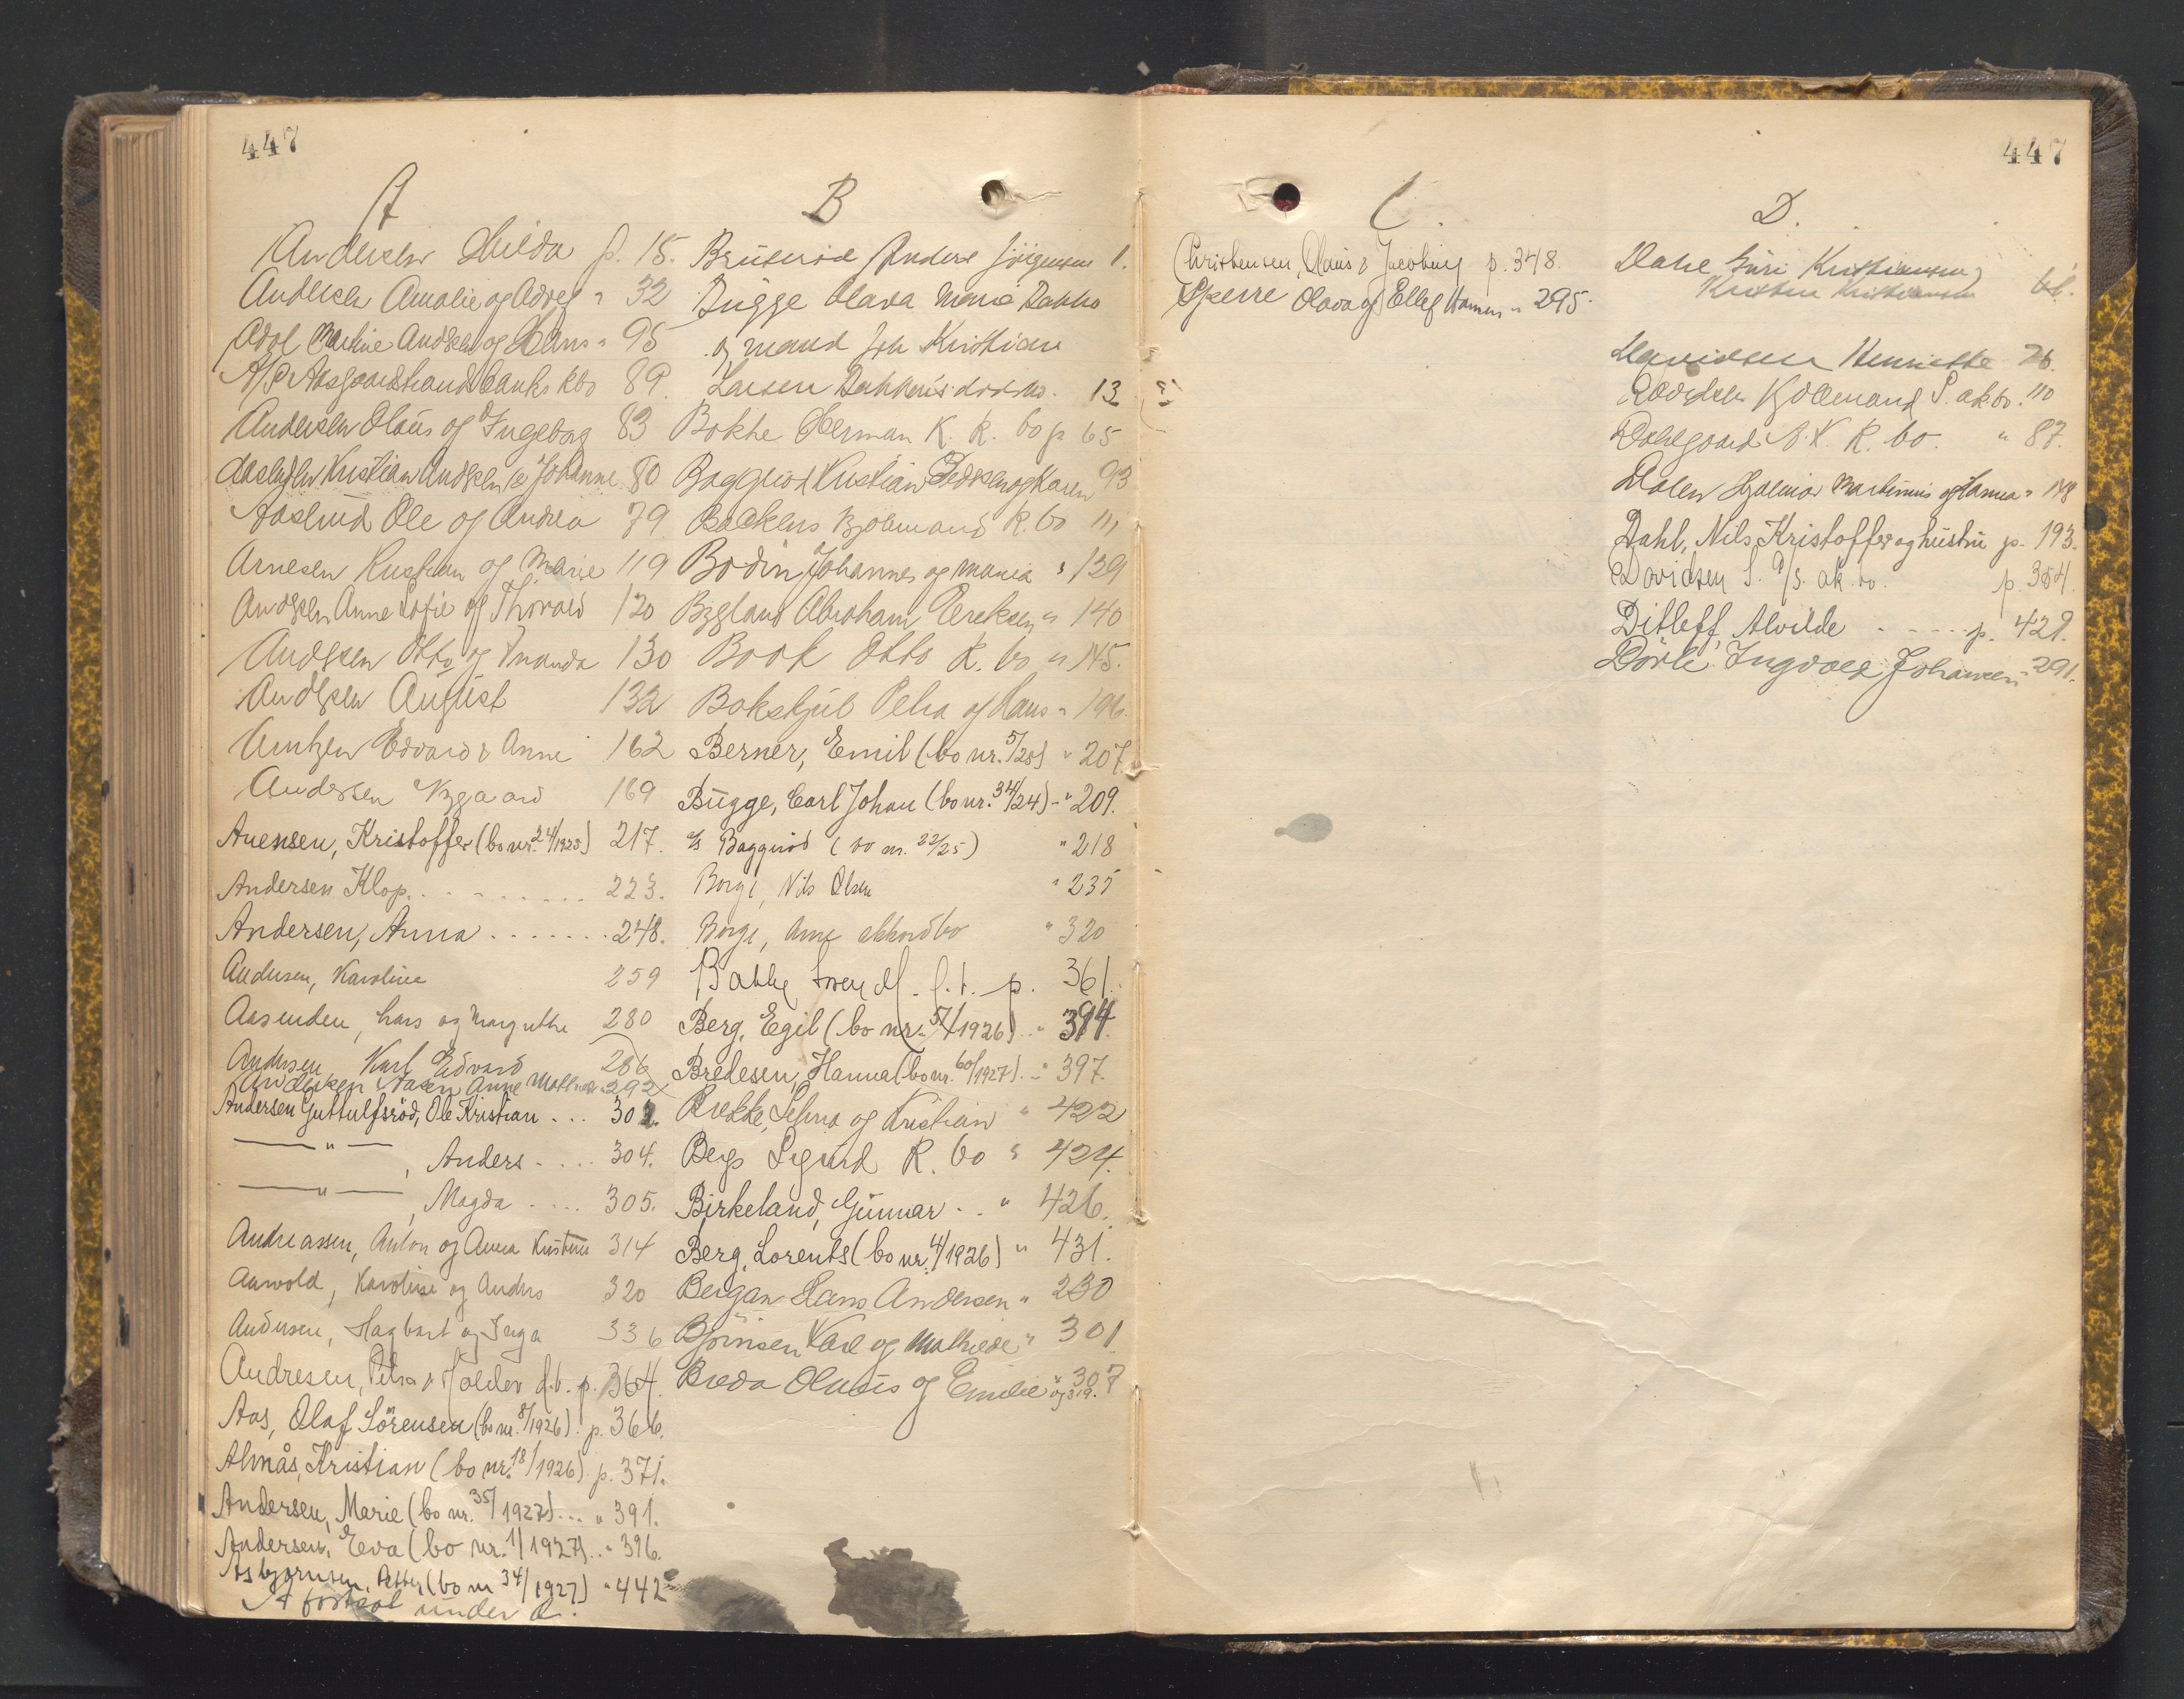 447
A
Andersen Hilda p. 15.
Andersen Amalie og Adolf " 32
Adol Martine Andersen og Hans " 95
A/S Aasgaardstrands banks kbo 89.
Andersen Olaus og Ingeborg 83
Kristian Andersen og Johanne 80
Aaslund Ole og Andrea 79
Arnesen Kristian og Marie 119
Andersen Anne Sofie og Thorvald 120
Andersen Otto og Amanda 130
Andersen August 132
Arntzen Edvard & Anne 162
Andersen Nygaard 169
Auensen, Kristoffer (bo nr. 24/1925) 217.
Andersen Klop. . . . . . . . . . 223.
Andersen, Anna . . . . . . . 248.
Andersen, Karoline 259
Aasenden, Lars og Margrethe 280
Andersen Karl Edvard 286
Andersen Aasen Anne Mathea 292
Andersen Guttulfsröd, Ole Kristian . . . 302.
— " — , Anders . . . . 304.
— " — , Magda . . . . 305.
Andreassen, Anton og Anna Kristine 314
Aarvold, Karoline og Anders 320
Andersen, Hagbart og Inga 336
Andresen, Petra & Halder d.b. p. 364.
Aas, Olaf Sörensen (bo nr. 8/1926). p. 366.
Almås, Kristian (bo nr. 18/1926). p. 371.
Andersen, Marie (bo nr. 35/1927) . . . " 391.
Andersen, Eva (bo nr. 1/1927) . . " 396.
Asbjørnsen, Petter (bo nr 34/1927) " 442
A fortsat under Q.
B
Bruserød Anders Jörgensen 1.
Bugge Olava Marie Bakke
og mand Joh Kristian
Larsen Bakkens dødsbo. 13
Bokke Herman K. K. bo p 65
Baggerød Kristian Pedersen og Karen 93
Backens Hjalmand K. bo 111
Bodin Johannes og Maria " 139
Bygland Abraham Tereksen " 140
Book Otto K. bo " 145.
Bokskjul Petra og Hans " 196.
Berner, Emil (bo nr. 5/25) " 207.
Bugge, Carl Johan (bo nr. 34/24) - " 209.
A/S Baggerød (bo nr. 22/25) " 218
Borge, Nils Olsen " 235
Borge, Arne akkordbo " 320
Bakke Sven M. f.t. p. 361.
Berg, Egil (bo nr. 57/1926) . . " 394.
Bredesen, Hanna (bo nr. 60/1927) . - " 397.
Brekke, Selma og Kristian " 422
Berg Sigurd K. bo " 424.
Birkeland, Gunnar . . " 426.
Berg, Lorents (bo nr. 4/1926) " 431.
Bergan Hans Andersen " 230
Bjönnsen Karl og Mathilde " 301
Breda Olausis og Emilie " 307
og 319.
447
C.
Christensen, Olaus & Jacobine p. 348.
Skjerre Olava og Ellef Hansen " 295.
D.
Dahl Guri Kristiansen
Kristen Kristiansen 61.
Davidsen Henriette 26.
Davidsen Hjelmand S. ak bo. 110
Dalsgaard A. K. K. bo. " 87.
Dalen Hjalmar Martinius og Hanna " 148
Dahl, Nils Kristoffer og hustru p. 193.
Davidsen S. A/S. ak. bo. p. 354.
Ditleff, Alvilde - . . . . p. 429.
Dørle Ingvald Johansen " 291.